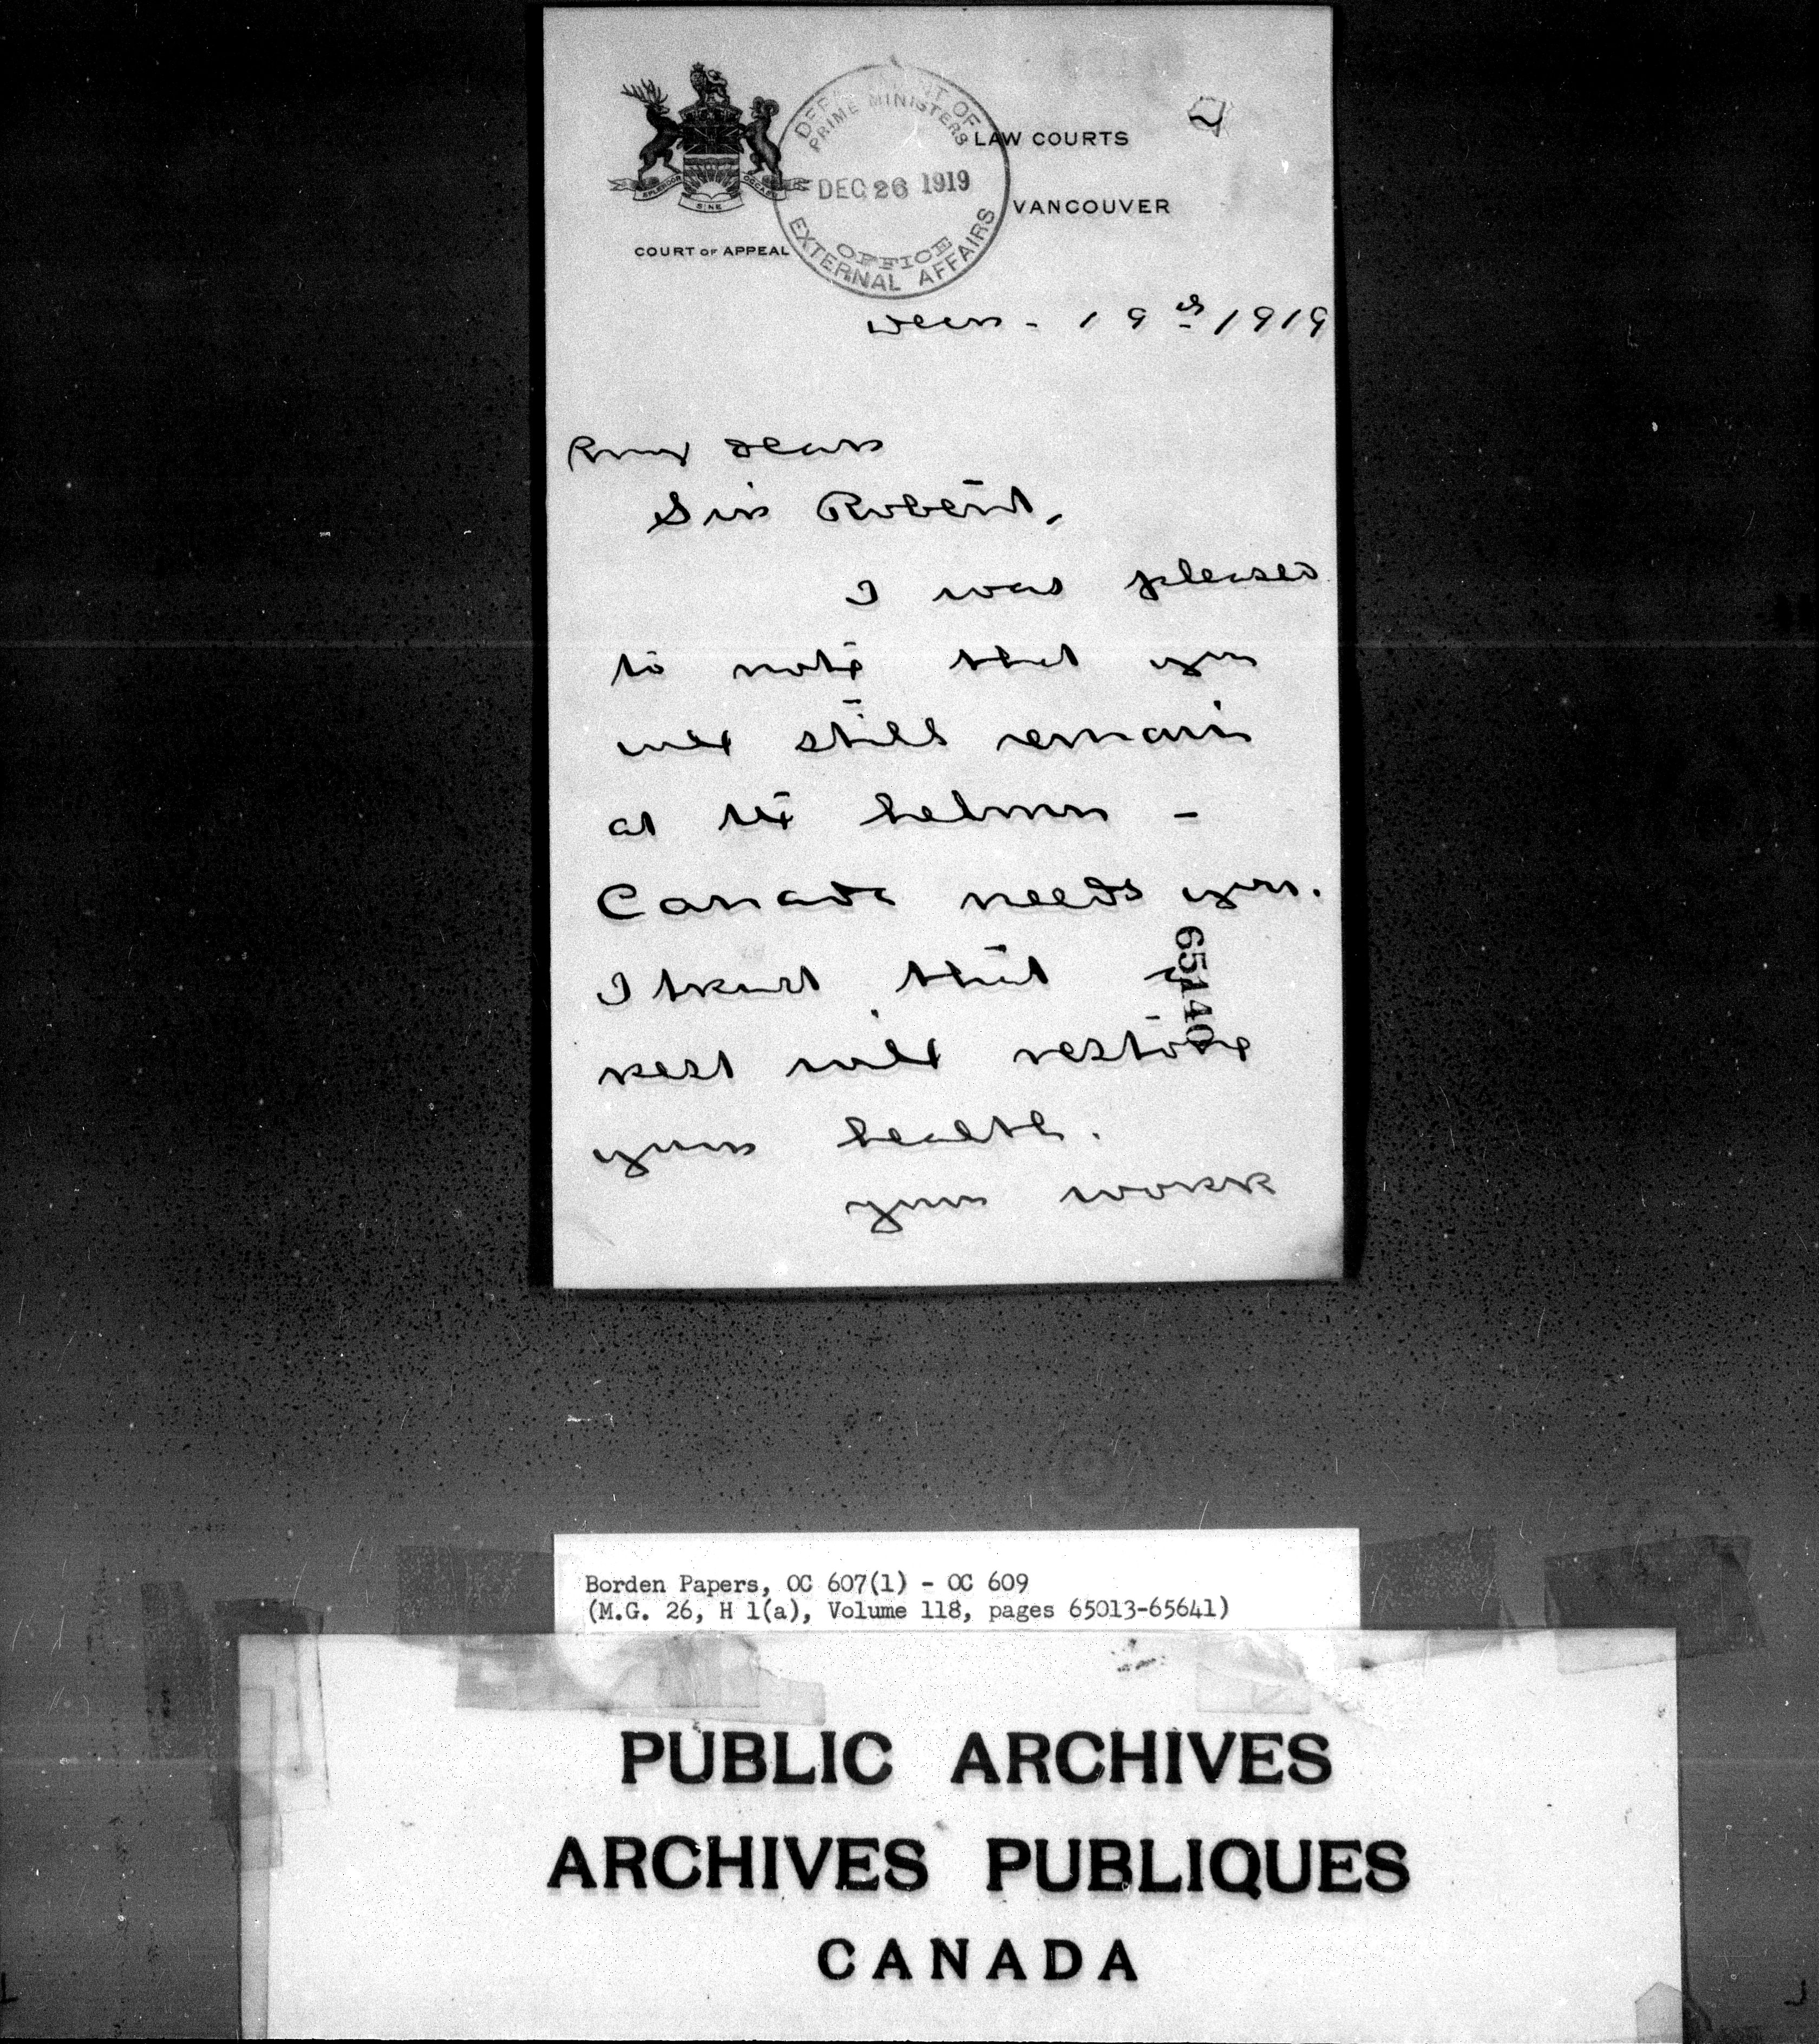 SPLENDOR SINE OCCASU
COURT OF APPEAL
DEPARTMENT OF
PRIME MINISTERS
DEC 26 1919
OFFICE
EXTERNAL AFFAIRS
LAW COURTS
VANCOUVER
Decr - 19th 1919
My dear
Sir Robert,
I was pleased
to note that you
will still remain
at the helm -
Canada needs you.
I trust that a
rest will restore
your health.
your work
65140
Borden Papers, OC 607(1) - OC 609
(M.G. 26, H 1(a), Volume 118, pages 65013-65641)
PUBLIC ARCHIVES
ARCHIVES PUBLIQUES
CANADA